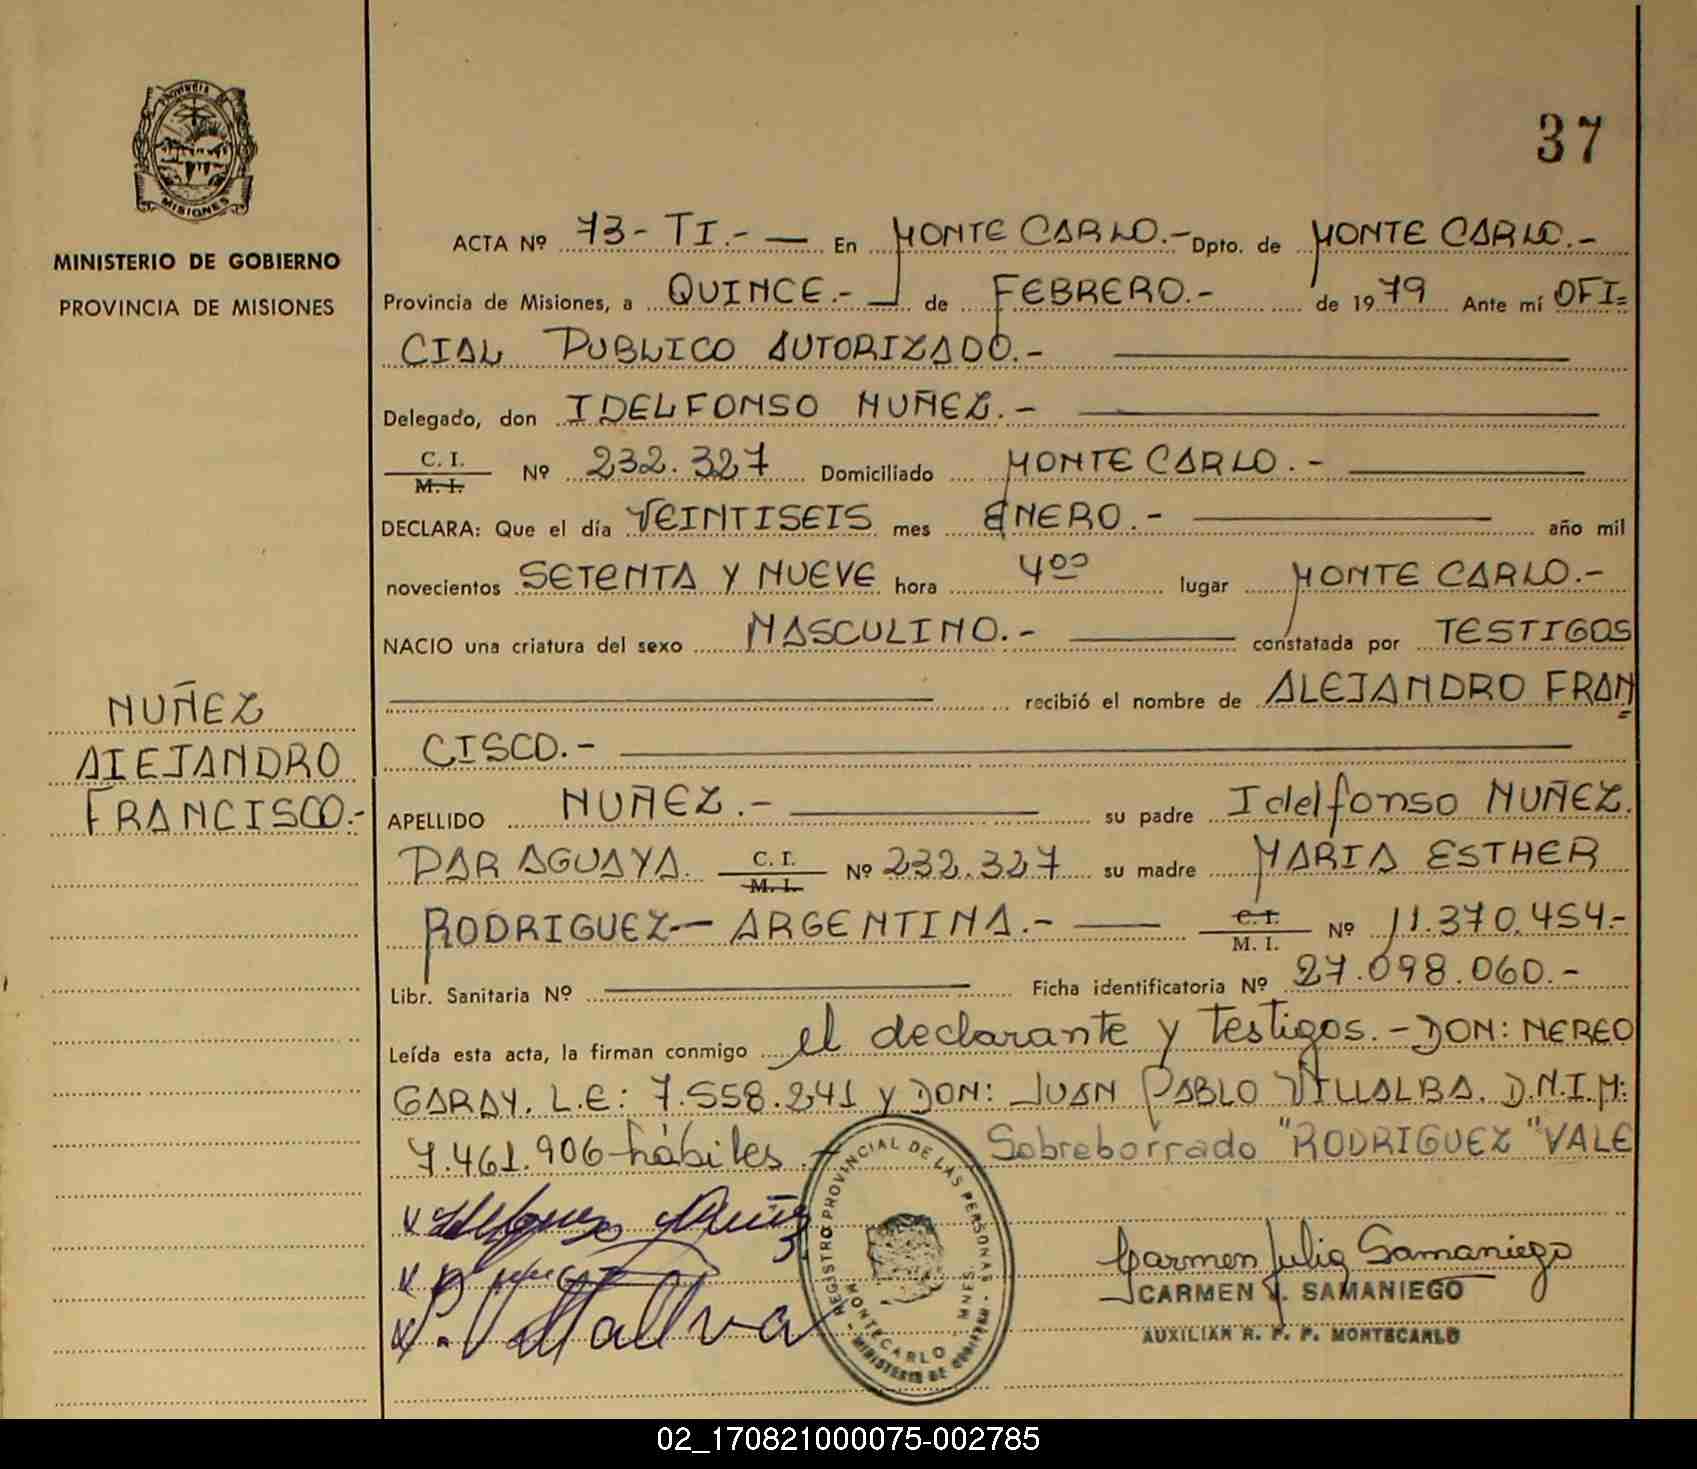 37
PROVINCIA DE
MISIONES
MINISTERIO DE GOBIERNO
PROVINCIA DE MISIONES
ACTA Nº 73-TI.- — En MONTE CARLO.- Dpto. de MONTE CARLO.-
Provincia de Misiones, a QUINCE.- — de FEBRERO.- de 1979 Ante mí OFI=
CIAL PUBLICO AUTORIZADO.-
Delegado, don IDELFONSO NUÑEZ.-
C. I. / M. I. Nº 232.327 Domiciliado MONTE CARLO.-
DECLARA: Que el día VEINTISEIS mes ENERO.- año mil
novecientos SETENTA Y NUEVE hora 4⁰⁰ lugar MONTE CARLO.-
NACIO una criatura del sexo MASCULINO.- constatada por TESTIGOS
recibió el nombre de ALEJANDRO FRAN=
CISCO.-
NUÑEZ
ALEJANDRO
FRANCISCO.-
APELLIDO NUÑEZ.- su padre Idelfonso NUÑEZ.
PARAGUAYA. C. I. / M. I. Nº 232.327 su madre MARIA ESTHER
RODRIGUEZ— ARGENTINA.- C. I. / M. I. Nº 11.370.454.-
Libr. Sanitaria Nº Ficha identificatoria Nº 27.098.060.-
Leída esta acta, la firman conmigo el declarante y testigos.- DON: NEREO
GARAY. L.E: 7.558.241 y DON: JUAN PABLO VILLALBA. D.N.I.M:
7.461.906-hábiles.- Sobreborrado "RODRIGUEZ" VALE
REGISTRO PROVINCIAL DE LAS PERSONAS
MONTECARLO MNES.
- MINISTERIO DE GOBIERNO -
Carmen Julia Samaniego
CARMEN J. SAMANIEGO
AUXILIAR R. P. P. MONTECARLO
02_170821000075-002785